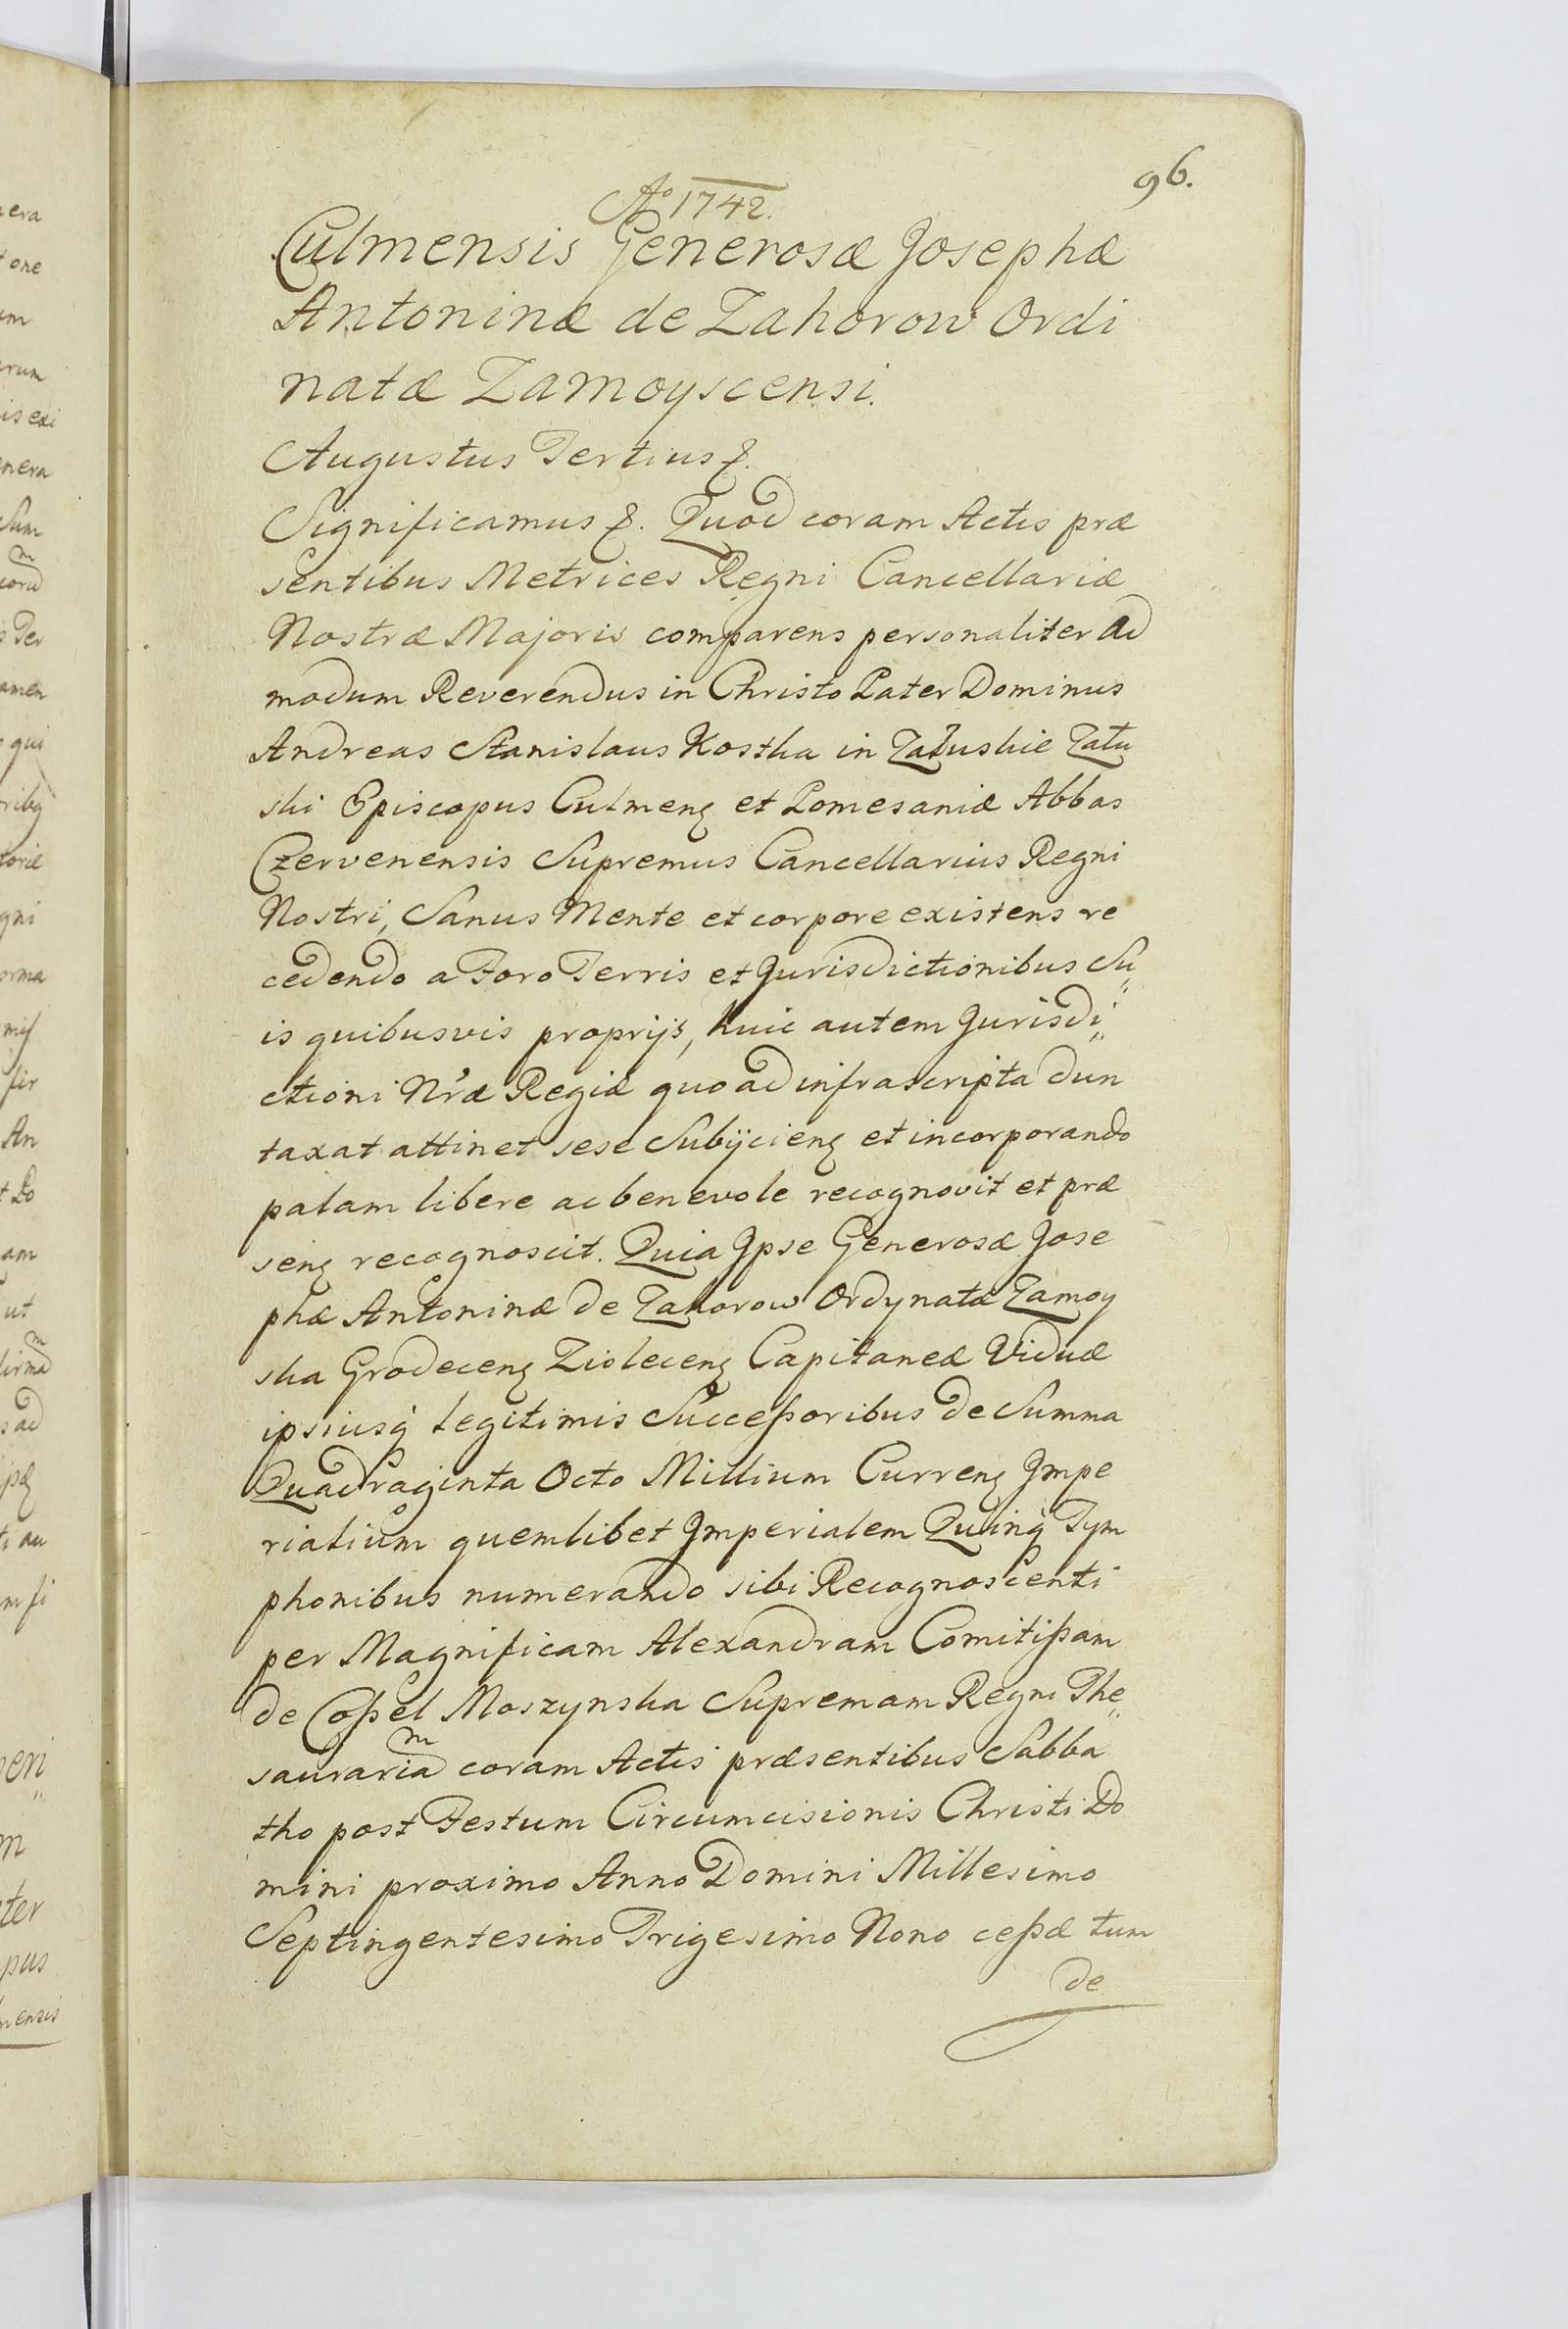 96.
Ao 1742.
Culmensis Generosæ Josephæ
Antoninæ de Zahorow Ordi
natæ Zamoyscensi.
Augustus Tertius &.
Significamus &. Quod coram Actis præ
sentibus Metrices Regni Cancellariæ
Nostræ Majoris comparens personaliter Ad
modum Reverendus in Christo Pater Dominus
Andreas Stanislaus Kostka in Załuskie Zału
ski Episcopus Culmenȩ et Pomesaniæ Abbas
Czervenensis Supremus Cancellarius Regni
Nostri, Sanus Mente et corpore existens re
cedendo a Foro Terris et Jurisdictionibus Su„
is quibusvis proprijs, huic autem Jurisdi„
ctioni Nræ Regiæ quoad infrascripta dun
taxat attinet sese Subijcienȩ et incorporando
palam libere ac benevole recognovit et præ
senȩ recognoscit. Quia Ipse Generosæ Jose
phæ Antoninæ de Zahorow Ordynatæ Zamoy
ska Grodecenȩ Ziolecenȩ Capitaneæ Viduæ
ipsiusq legitimis Succeßoribus de Summa
Quadraginta Octo Millium Currenȩ Impe
rialium quemlibet Imperialem Quinq Tym
phonibus numerando sibi Recognoscenti
per Magnificam Alexandram Comitißam
de Coßel Moszynska Supremam Regni The„
saurariam coram Actis præsentibus Sabba
tho post Festum Circumcisionis Christi Do
mini proximo Anno Domini Millesimo
Septingentesimo Trigesimo Nono ceßæ tum
de